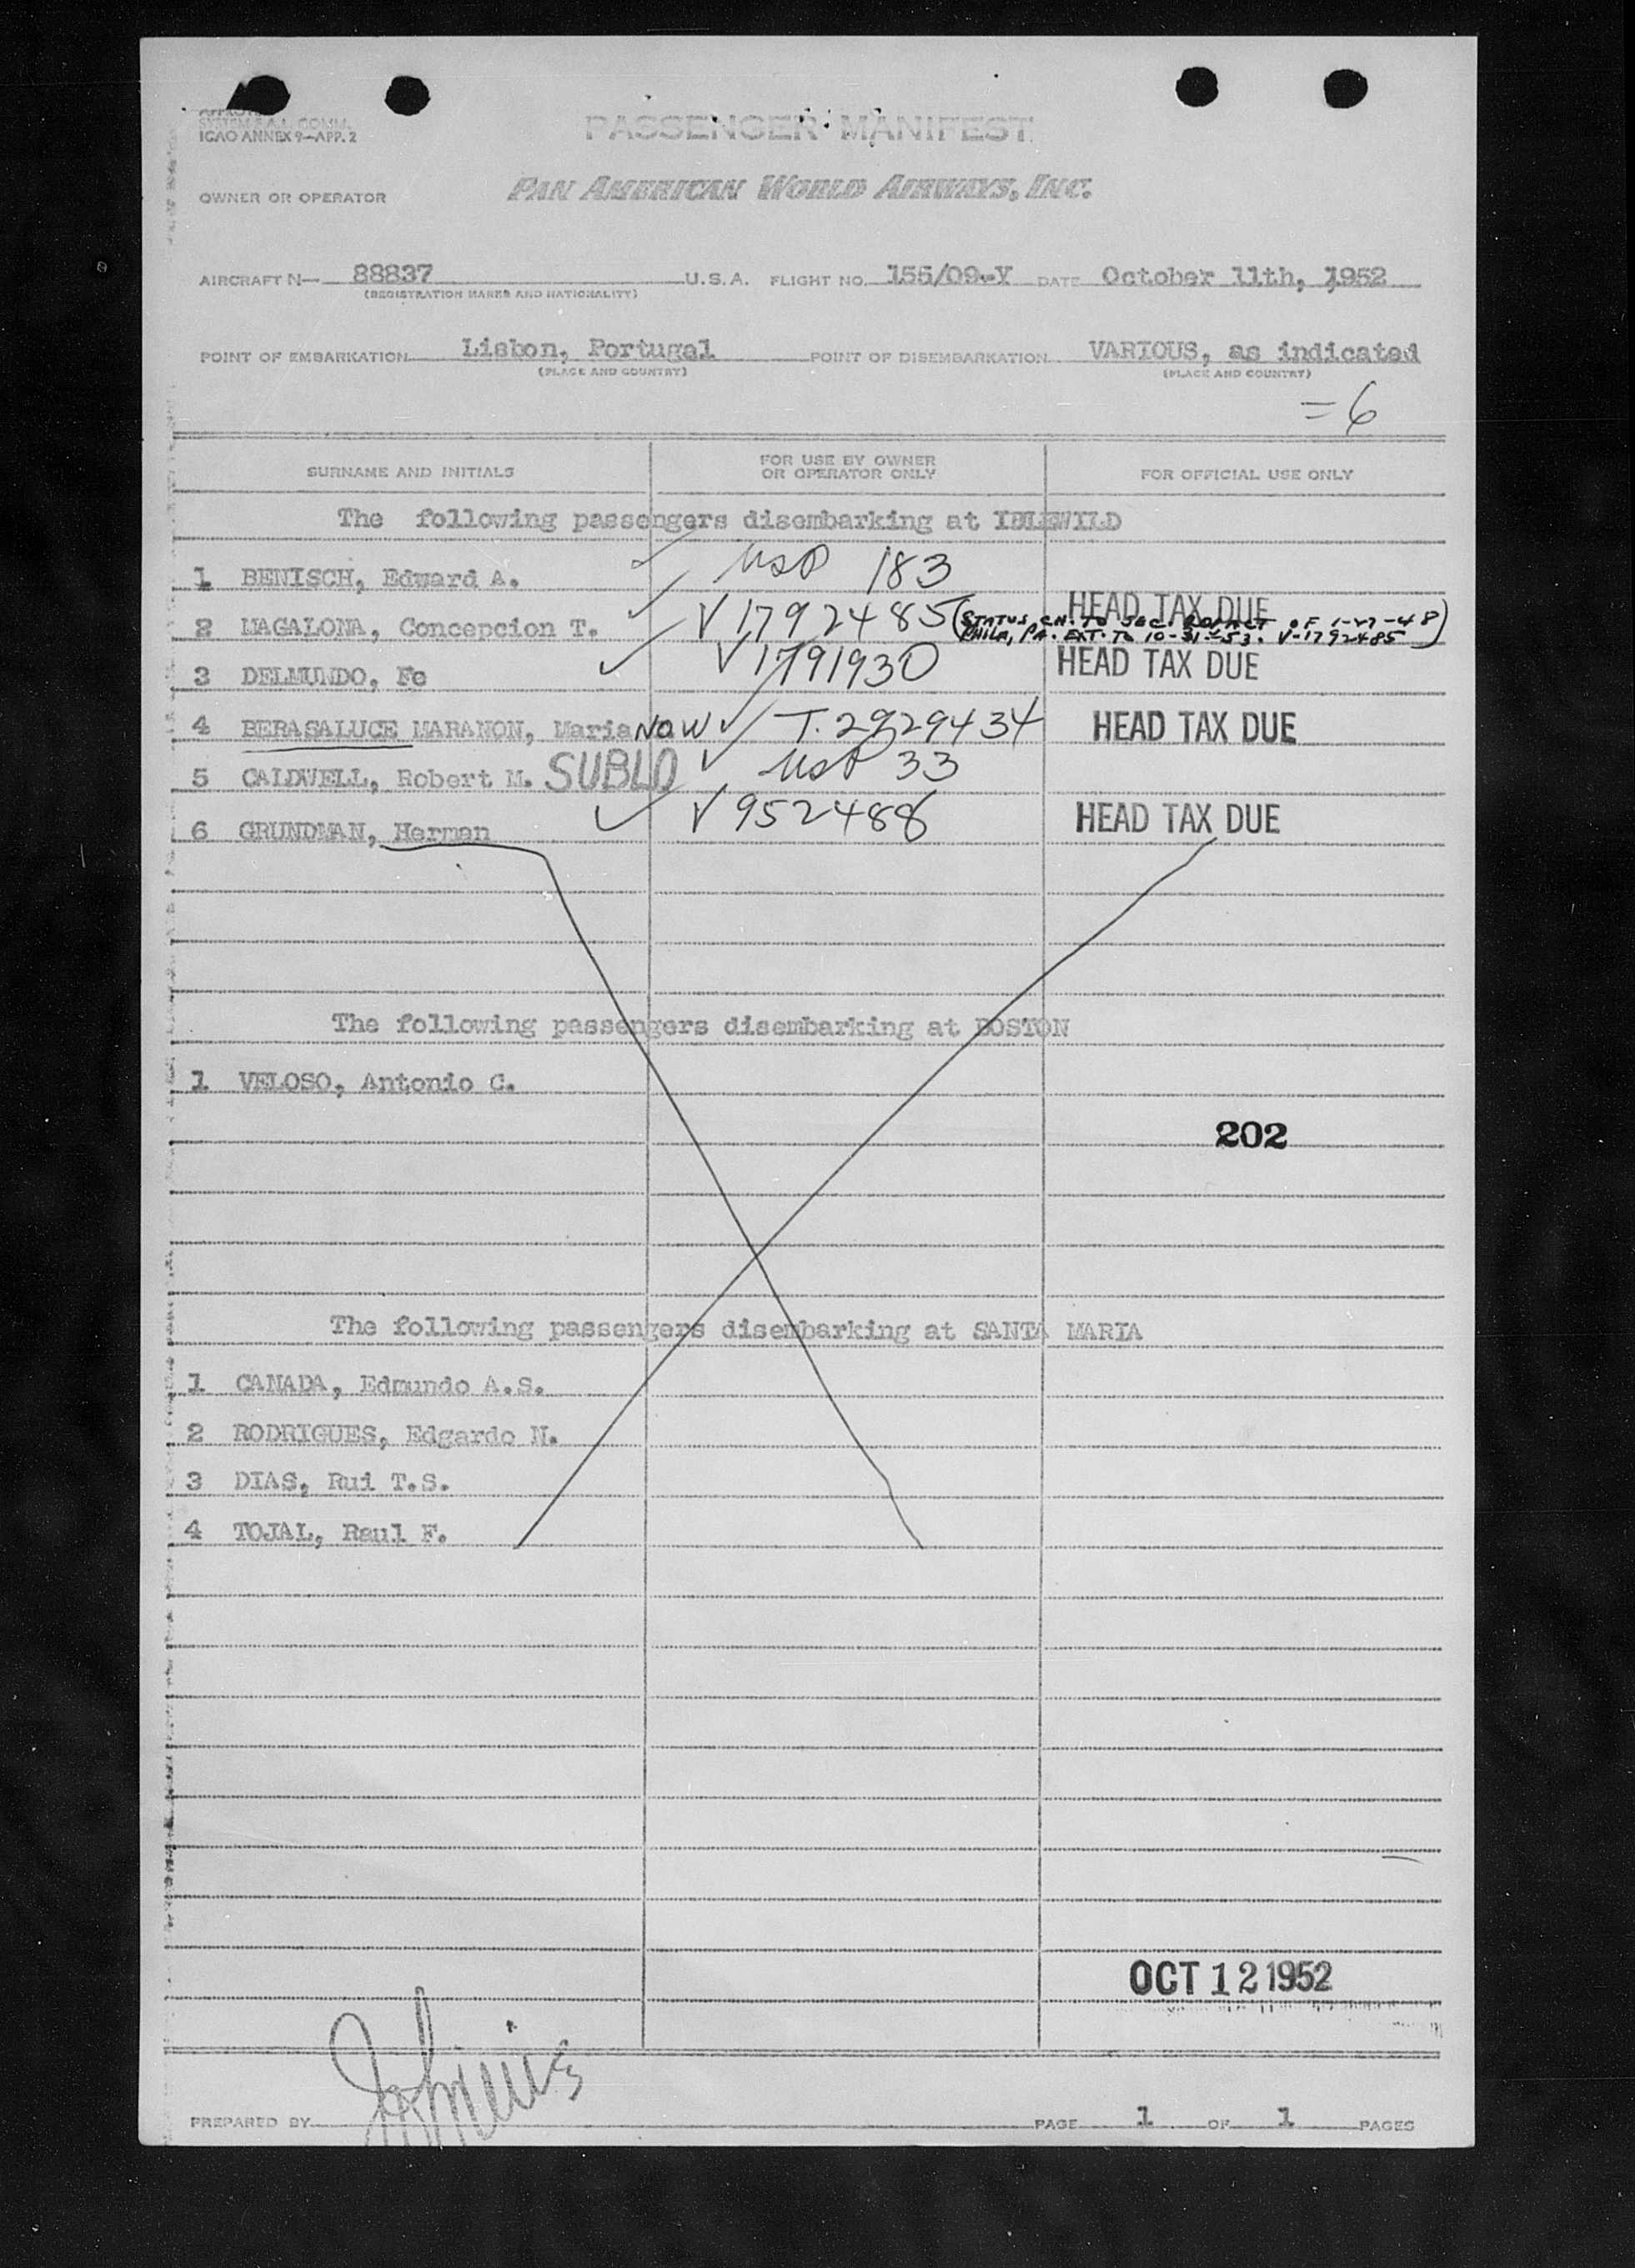 SYSTEM F.A.L. COMM.
ICAO ANNEX 9—APP. 2
PASSENGER MANIFEST
OWNER OR OPERATOR PAN AMERICAN WORLD AIRWAYS, INC.
AIRCRAFT N— 88837 U.S.A. FLIGHT NO. 155/09-Y DATE October 11th, 1952
(REGISTRATION MARKS AND NATIONALITY)
POINT OF EMBARKATION Lisbon, Portugal POINT OF DISEMBARKATION VARIOUS, as indicated
(PLACE AND COUNTRY) (PLACE AND COUNTRY)
=6
SURNAME AND INITIALS FOR USE BY OWNER OR OPERATOR ONLY FOR OFFICIAL USE ONLY
The following passengers disembarking at IDLEWILD
1 BENISCH, Edward A. USP 183
2 MAGALONA, Concepcion T. V1792485 HEAD TAX DUE
(STATUS CH. TO SEC. OF 1-27-48
PHILA, PA. EXT. TO 10-31-53. V-1792485)
3 DELMUNDO, Fe V1791930 HEAD TAX DUE
4 BERASALUCE MARANON, Maria NOW T.2929434 HEAD TAX DUE
5 CALDWELL, Robert M. SUBLD USP 33
6 GRUNDMAN, Herman V952488 HEAD TAX DUE
The following passengers disembarking at BOSTON
1 VELOSO, Antonio C.
202
The following passengers disembarking at SANTA MARIA
1 CANADA, Edmundo A.S.
2 RODRIGUES, Edgardo N.
3 DIAS, Rui T.S.
4 TOJAL, Raul F.
OCT 12 1952
PREPARED BY PAGE 1 OF 1 PAGES